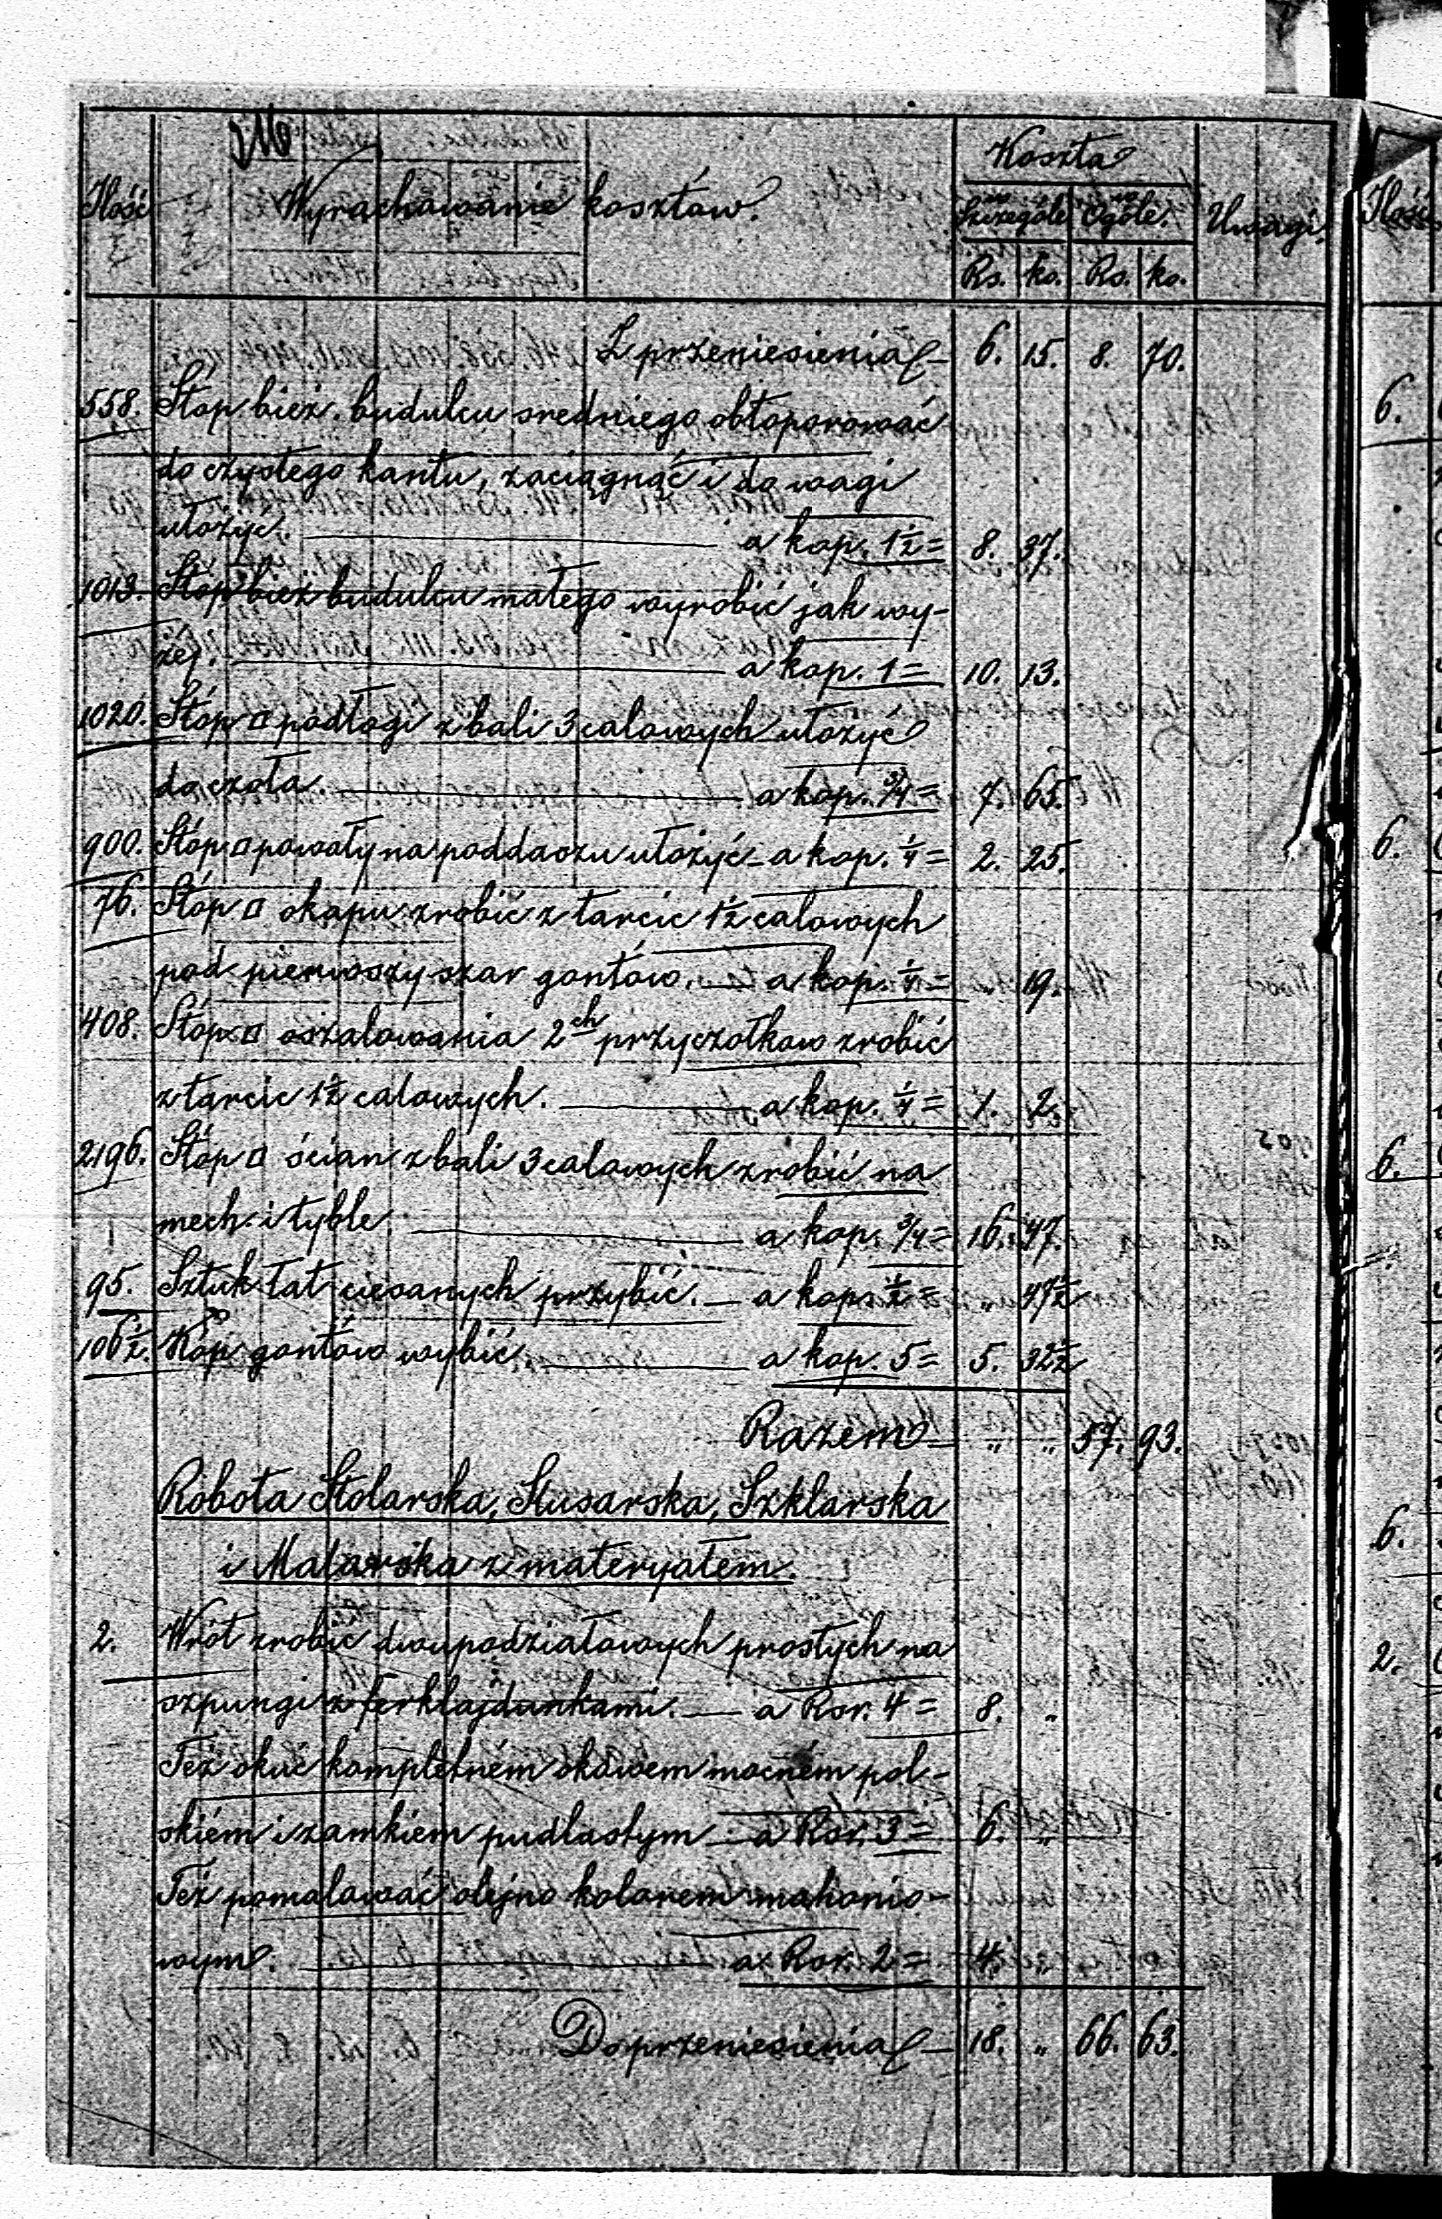 Koszta
Ilość Wyrachowanie kosztów. w Szczególe w Ogóle. Uwagi. Ilość
Rs. ko. Rs. ko.
Z przeniesienia — 6. 15. 8. 70.
558. Stóp bież. budulcu sredniego obtoporować
do czystego kantu, zaciągnąć i do wagi
ułożyć. a kop. 1½ = 8. 37.
1013. Stóp bież budulcu małego wyrobić jak wy-
żéj. a kop. 1 = 10. 13.
1020. Stóp □ podłogi z bali 3 calowych ułożyć
do czoła. a kop. 3/4 = 7. 65.
900. Stóp □ powały na poddaszu ułożyć — a kop. ¼ = 2. 25.
76. Stóp □ okapu zrobić z tarcic 1½ calowych
pod pierwszy szar gontów. — a kop. ¼ = 19.
408. Stóp □ oszalowania 2ch przyczołkow zrobić
z tarcic 1½ calowych. a kop. ¼ = 1. 2.
2196. Stóp □ ścian z bali 3 calowych zrobić na
mech i tyble a kop. 3/4 = 16. 47.
95. Sztuk łat ciesanych przybić. — a kop. ½ = „ 47½
106½. Kóp gontów wybić. a kop. 5 = 5. 32½
Razem — „ „ 57. 93.
Robota Stolarska, Slusarska, Szklarska
i Malarska z materyałem.
2. Wrót zrobić dwupodziałowych prostych na
szpungi z ferklajdunkami. — a Rsr. 4 = 8. „
Też okuć kompletném okowem mocném pol-
skiém i zamkiem pudlastym — a Rsr. 3 = 6. „
Też pomalować olejno kolorem mahonio-
wym. a Rsr. 2 = 4. „
Do przeniesienia — 18. „ 66. 63.
6.
6.
6.
6.
2.